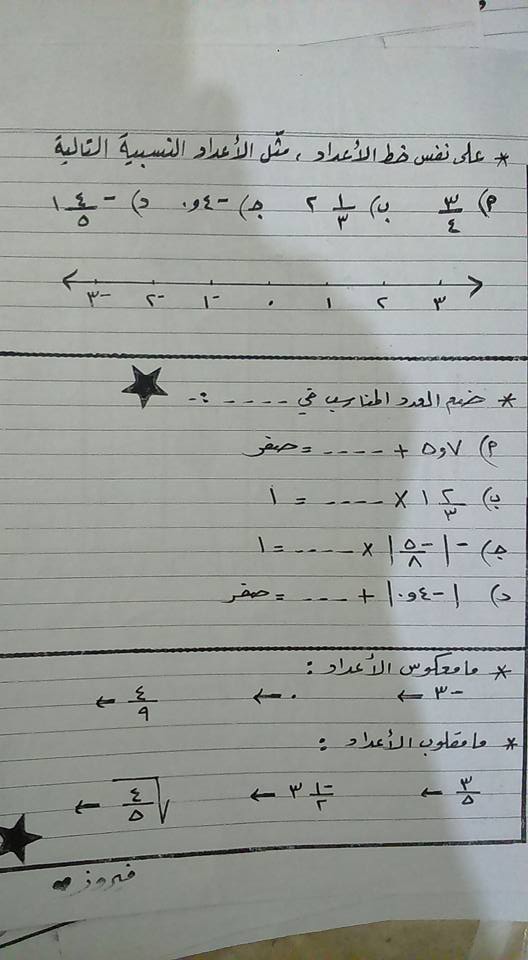 * على نفس خط الأعداد ، مثّل الأعداد النسبية التالية
م) ٣/٤ ب) ٢ ١/٣ جـ) -٤و٠ د) -١ ٤/٥
-٣ -٢ -١ ٠ ١ ٢ ٣
* ضع العدد المناسب في ---- :-
م) ٧و٥ + ---- = صفر
ب) ١ ٢/٣ × ---- = ١
جـ) -|-٥/٨| × ---- = ١
د) |-٤و٠| + ---- = صفر
* ما معكوس الأعداد :
-٣ ← ٠ ← ٤/٩ ←
* ما مقلوب الأعداد :
٣/٥ ← ٣ -١/٢ ← √٤/٥ ←
فيروز